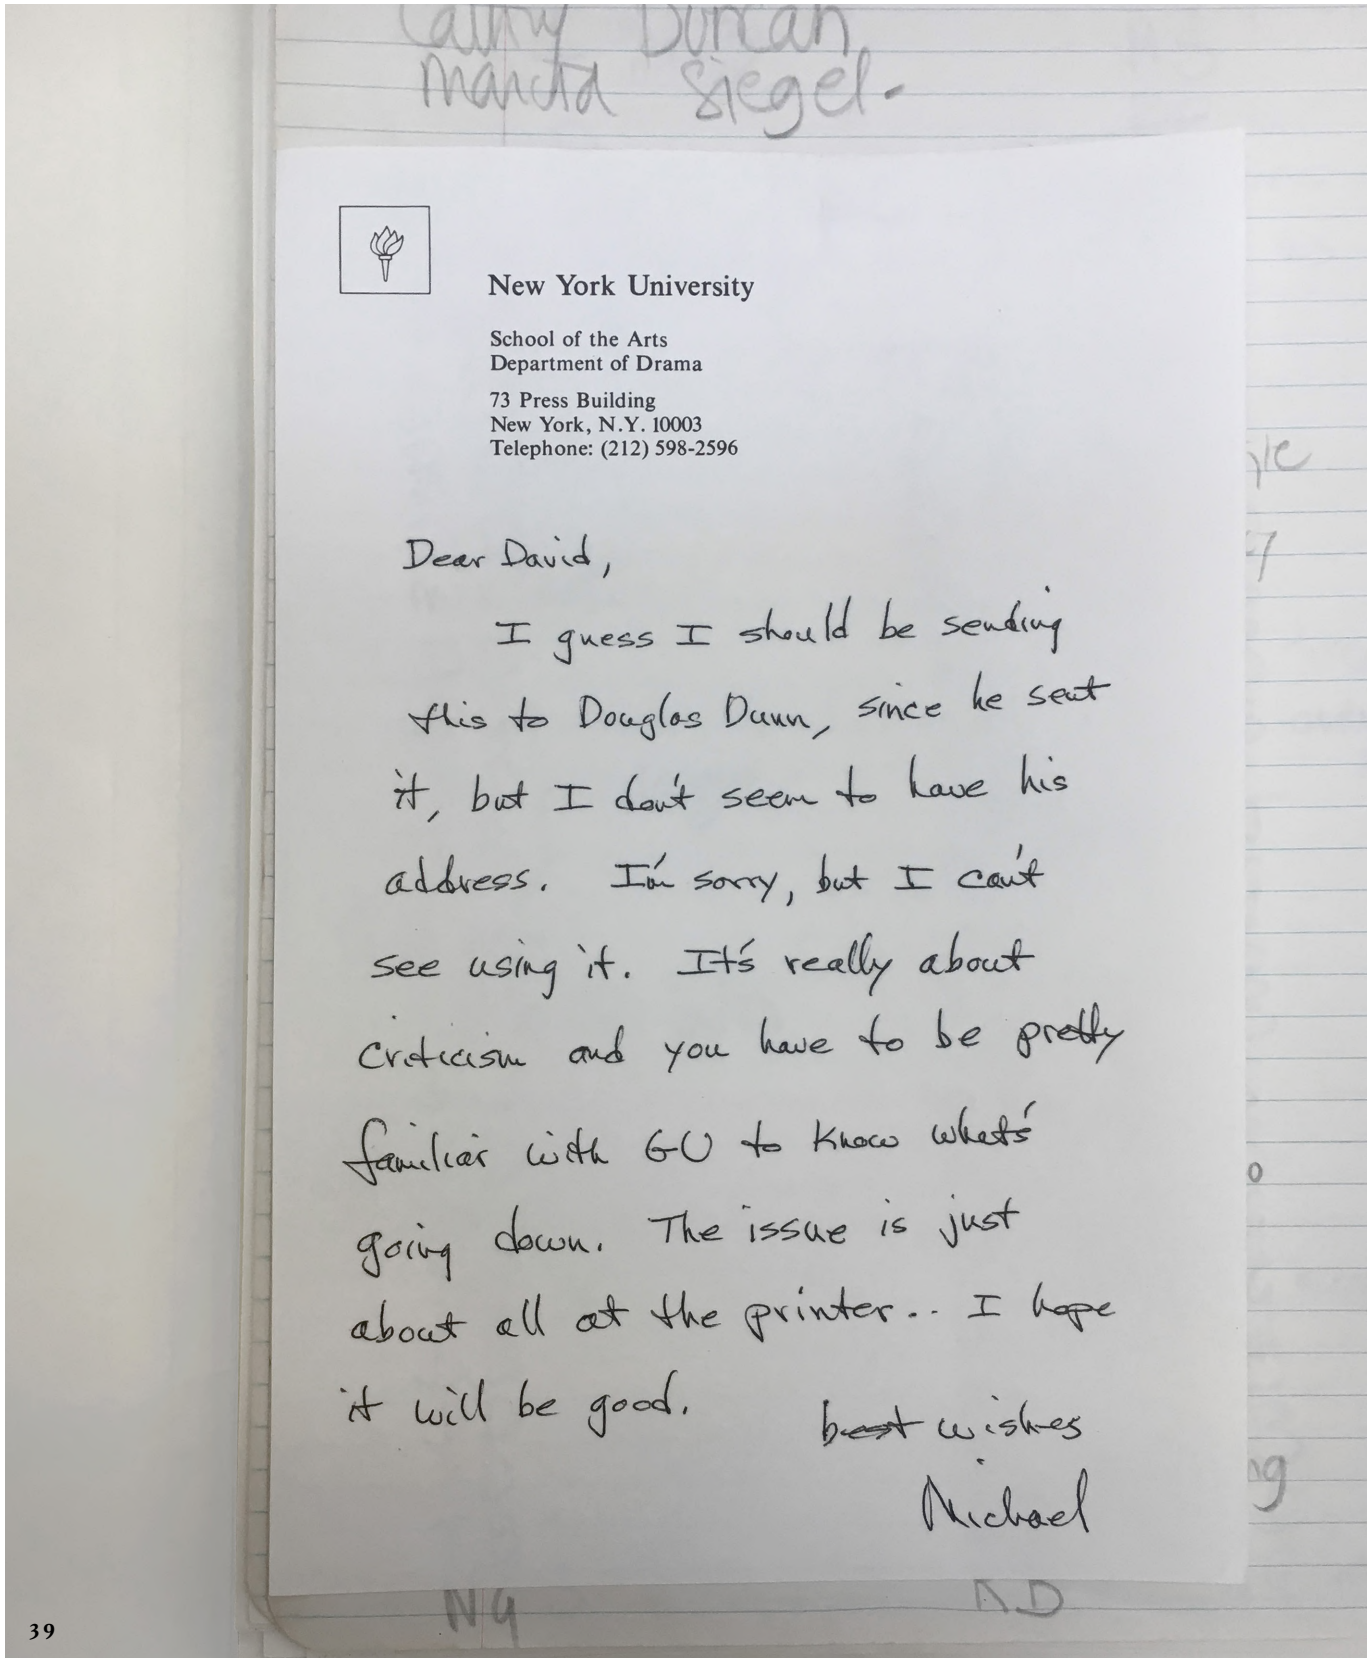 Cathy Duncan,
Marcia Siegel-
New York University
School of the Arts
Department of Drama
73 Press Building
New York, N.Y. 10003
Telephone: (212) 598-2596
Dear David,
I guess I should be sending
this to Douglas Dunn, since he sent
it, but I don't seem to have his
address. I'm sorry, but I can't
see using it. It's really about
criticism and you have to be pretty
familiar with GU to know what's
going down. The issue is just
about all at the printer.. I hope
it will be good.
best wishes
Michael
39